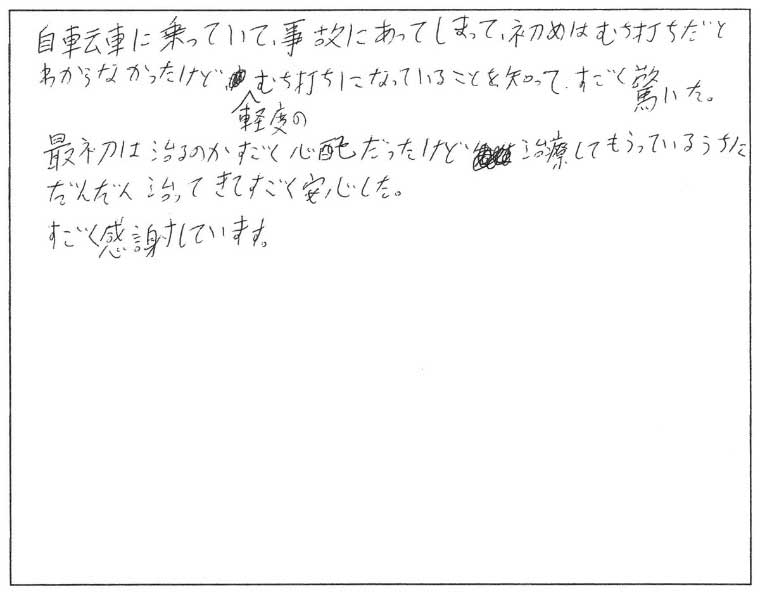 自転車に乗っていて、事故にあってしまって、初めはむち打ちだと
わからなかったけど 軽度のむち打ちになっていることを知って、すごく驚いた。
最初は治るのかすごく心配だったけど 治療してもらっているうちに
だんだん治ってきてすごく安心した。
すごく感謝しています。